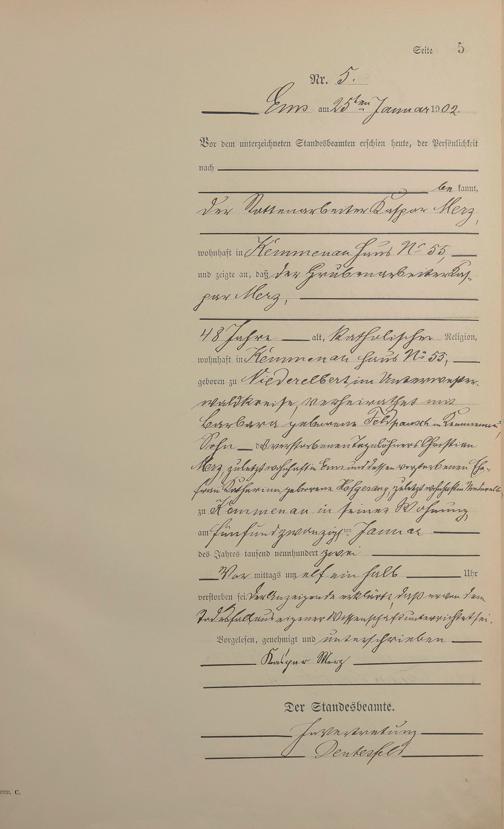 Seite 5
Nr. 5.
Ems am 25ten Januar 1902.
Vor dem unterzeichneten Standesbeamten erschien heute, der Persönlichkeit
nach
be kannt,
der Rottenarbeiter Kaspar Merz,
wohnhaft in Kemmenau Haus No 55,
und zeigte an, daß der Grubenarbeiter Kas-
par Merz,
48 Jahre alt, katholischer Religion,
wohnhaft in Kemmenau Haus No 55,
geboren zu Niederelbert im Unterwester-
waldkreise, verheirathet mit
Barbara geborene in Kemmenau,
Sohn des verstorbenen Tagelöhners Christian
Merz zuletzt wohnhaft in und dessen verstorbenen Ehe-
frau Katharina geborene zuletzt wohnhaft in
zu Kemmenau in seiner Wohnung
am fünfundzwanzigsten Januar
des Jahres tausend neunhundert zwei
Vor mittags um elf ein halb Uhr
verstorben sei. Der Anzeigende erklärte, daß er von dem
Todesfall aus eigener Wissenschaft unterrichtet sei.
Vorgelesen, genehmigt und unterschrieben
Kaspar Merz
Der Standesbeamte.
In Vertretung